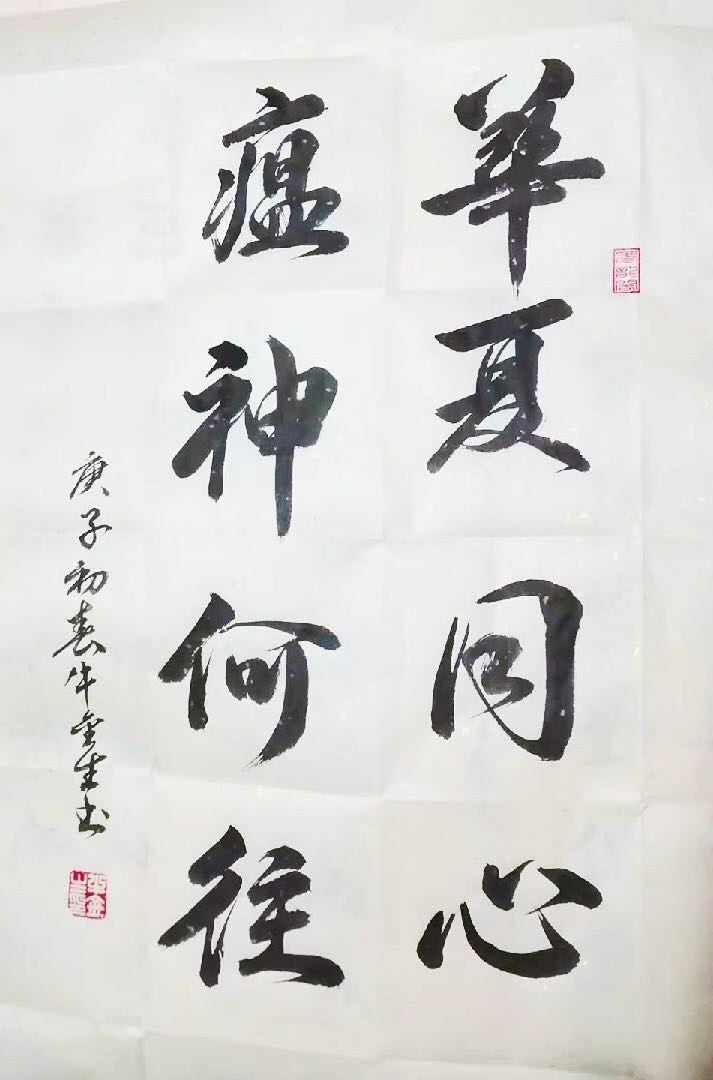 華夏同心
瘟神何往
庚子初春牛金生书